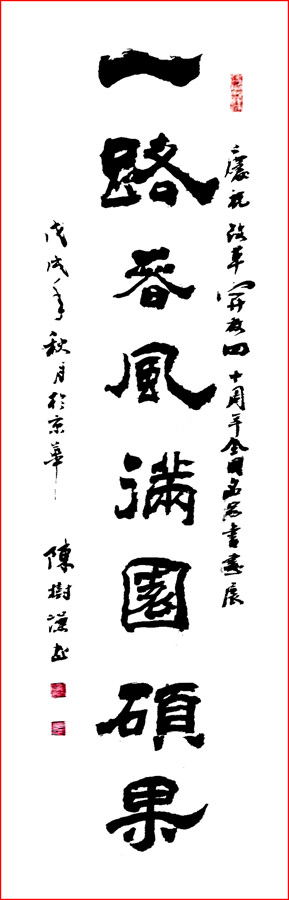 慶祝改革開放四十周年全國名家書畫展
一路春風滿園碩果
戊戌年秋月於京華
陳樹謙書